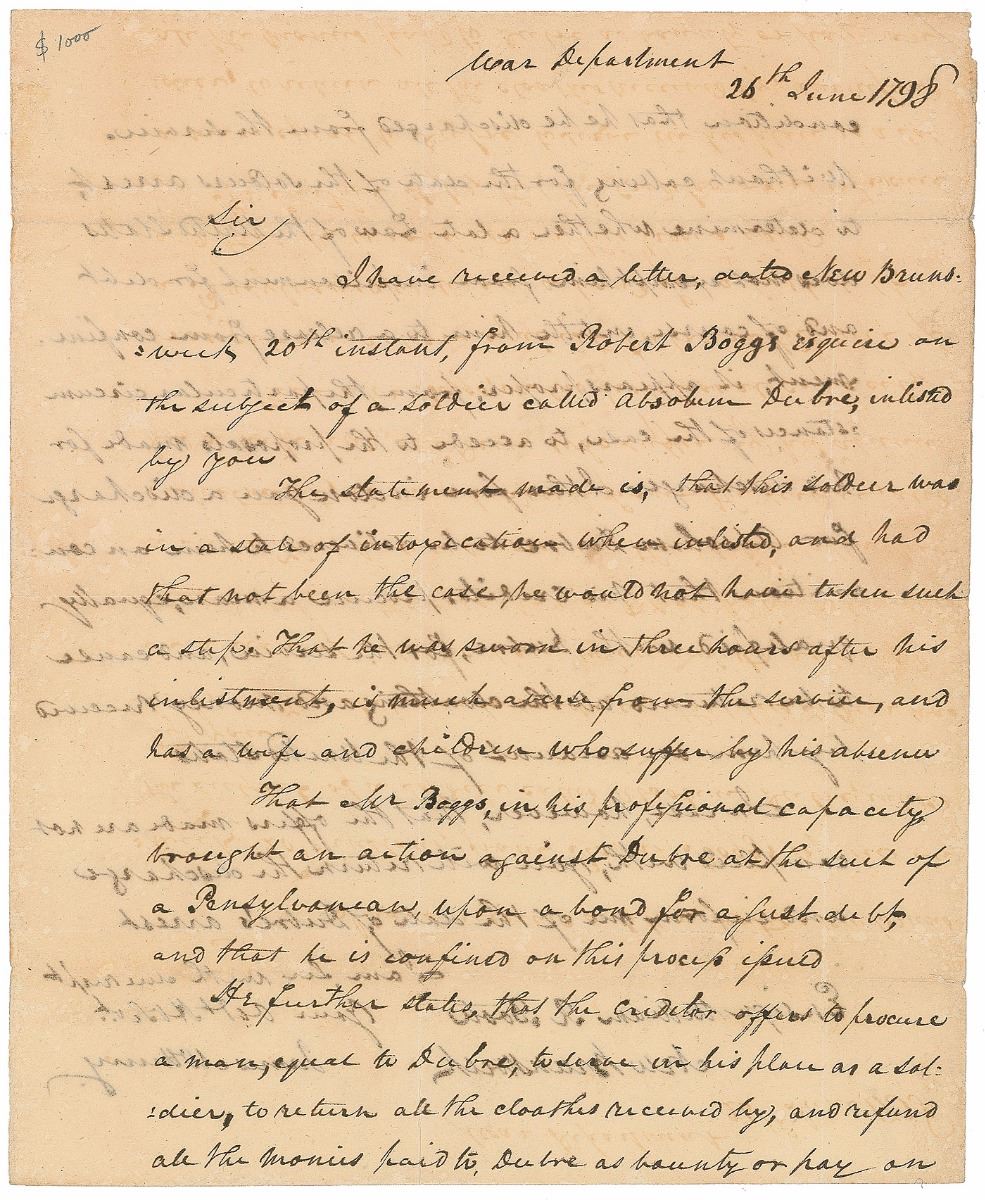 $ 1000
War Department
26th June 1798
Sir
I have received a letter, dated New Bruns-
:wick 20th instant, from Robert Boggs esquire on
the subject of a soldier called Absolum Dubre, inlisted
by you
The statement made is, that this soldier was
in a state of intoxication when inlisted, and had
that not been the case, he would not have taken such
a step. That he was sworn in three hours after his
inlistment, is much averse from the service, and
has a wife and children who suffer by his absence
That Mr Boggs, in his professional capacity,
brought an action against Dubre at the suit of
a Pensylvanean, upon a bond for a just debt,
and that he is confined on this process issued
He further states, that the creditor offers to procure
a man, equal to Dubre, to serve in his place as a sol-
:dier, to return all the cloathes received by, and refund
all the monies paid to, Dubre as bounty or pay on